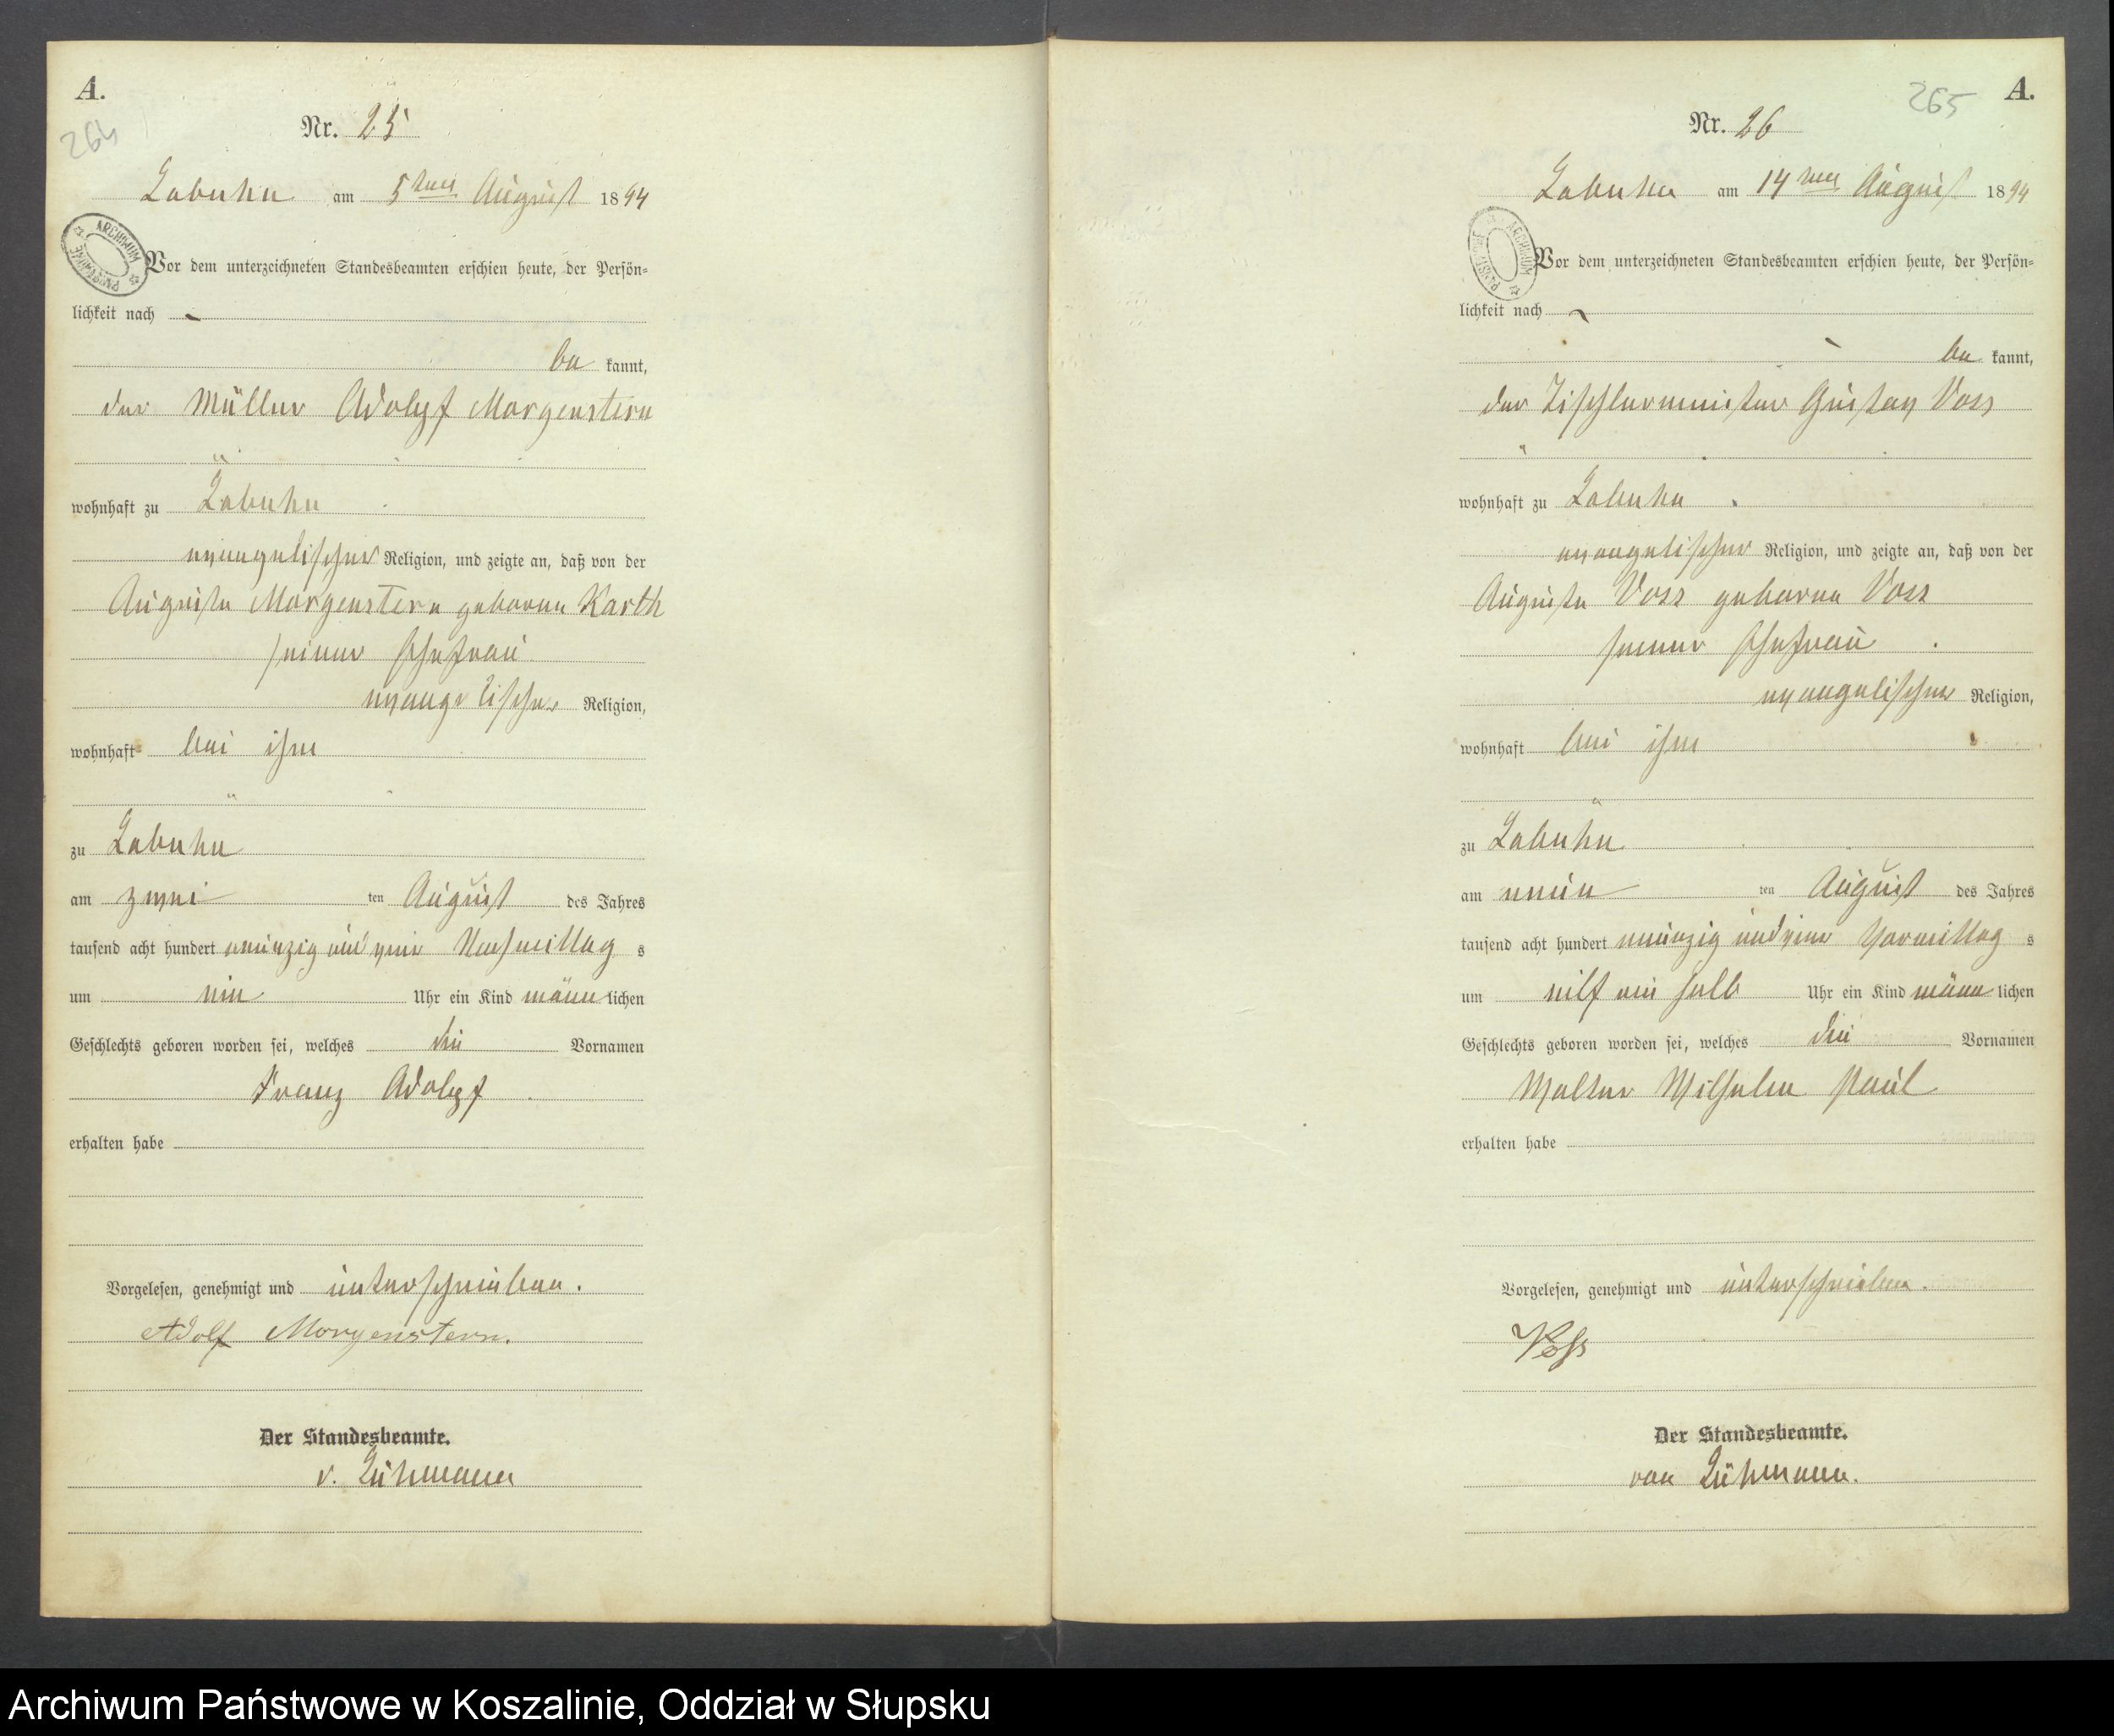 A.
264
Nr. 25
Labuhn am 5ten August 1894
ARCHIWUM PAŃSTWOWE
Vor dem unterzeichneten Standesbeamten erschien heute, der Persön=
lichkeit nach
be kannt,
der Müller Adolpf Morgenstern
wohnhaft zu Labuhn
evangelischer Religion, und zeigte an, daß von der
Auguste Morgenstern geborene Karth
seiner Ehefrau
evangelischer Religion,
wohnhaft bei ihm
zu Labuhn
am zwei ten August des Jahres
tausend acht hundert neunzig und vier Nachmittag s
um ein Uhr ein Kind männ lichen
Geschlechts geboren worden sei, welches die Vornamen
Franz Adolpf
erhalten habe
Vorgelesen, genehmigt und unterschrieben.
Adolf Morgenstern.
Der Standesbeamte.
v. Lühmann
265
A.
Nr. 26
Labuhn am 14ten August 1894
ARCHIWUM PAŃSTWOWE
Vor dem unterzeichneten Standesbeamten erschien heute, der Persön=
lichkeit nach
be kannt,
der Tischlermeister Gustav Voss
wohnhaft zu Labuhn
evangelischer Religion, und zeigte an, daß von der
Auguste Voss geborene Voss
seiner Ehefrau
evangelischer Religion,
wohnhaft bei ihm
zu Labuhn
am neun ten August des Jahres
tausend acht hundert neunzig und vier Vormittag s
um elf ein halb Uhr ein Kind männ lichen
Geschlechts geboren worden sei, welches die Vornamen
Walter Wilhelm Paul
erhalten habe
Vorgelesen, genehmigt und unterschrieben.
Voss
Der Standesbeamte.
von Lühmann.
Archiwum Państwowe w Koszalinie, Oddział w Słupsku